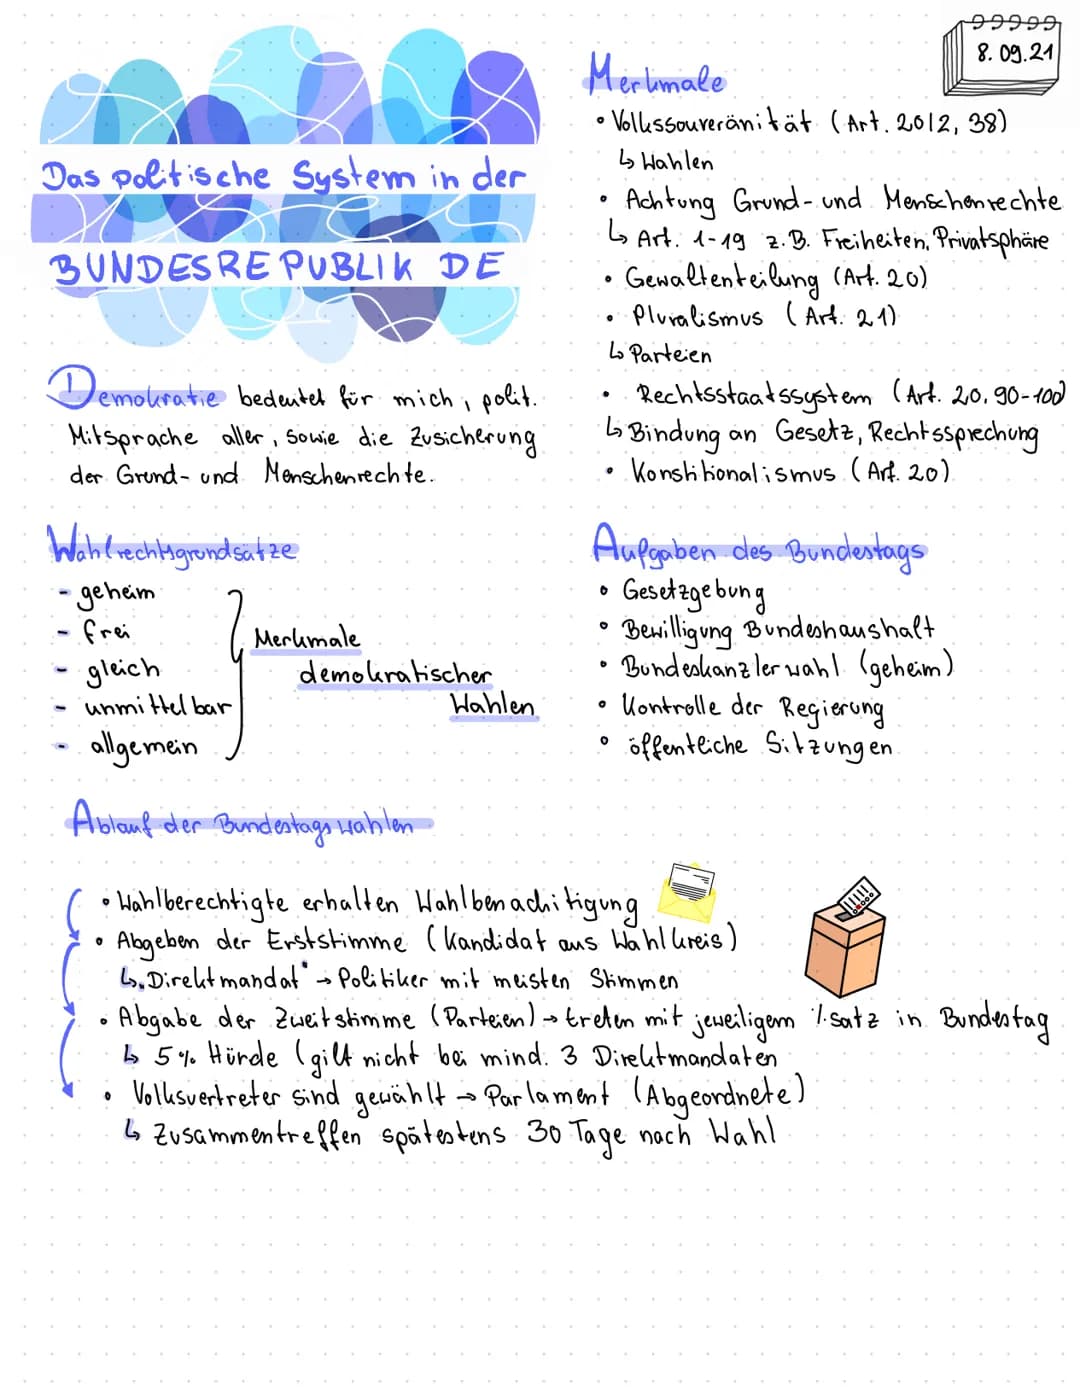 8. 09.21
Das politische System in der
BUNDESREPUBLIK DE
Demokratie bedeutet für mich, polit.
Mitsprache aller, sowie die Zusicherung
der Grund- und Menschenrechte.
Merkmale
• Volkssouveränität (Art. 2012, 38)
↳ Wahlen
• Achtung Grund- und Menschenrechte
↳ Art. 1-19 z.B. Freiheiten, Privatsphäre
• Gewaltenteilung (Art. 20)
• Pluralismus (Art. 21)
↳ Parteien
• Rechtsstaatssystem (Art. 20, 90-100)
↳ Bindung an Gesetz, Rechtssprechung
• Konstitionalismus (Art. 20)
Wahlrechtsgrundsätze
- geheim
- frei
- gleich
- unmittelbar
- allgemein
Merkmale
demokratischer
Wahlen
Aufgaben des Bundestags
• Gesetzgebung
• Bewilligung Bundeshaushalt
• Bundeskanzlerwahl (geheim)
• Kontrolle der Regierung
• öffentliche Sitzungen
Ablauf der Bundestagswahlen
• Wahlberechtigte erhalten Wahlbenachitigung
• Abgeben der Erststimme (Kandidat aus Wahlkreis)
↳ „Direktmandat" → Politiker mit meisten Stimmen
• Abgabe der Zweitstimme (Parteien) → treten mit jeweiligem %satz in Bundestag
↳ 5% Hürde (gilt nicht bei mind. 3 Direktmandaten
• Volksvertreter sind gewählt → Parlament (Abgeordnete)
↳ Zusammentreffen spätestens 30 Tage nach Wahl